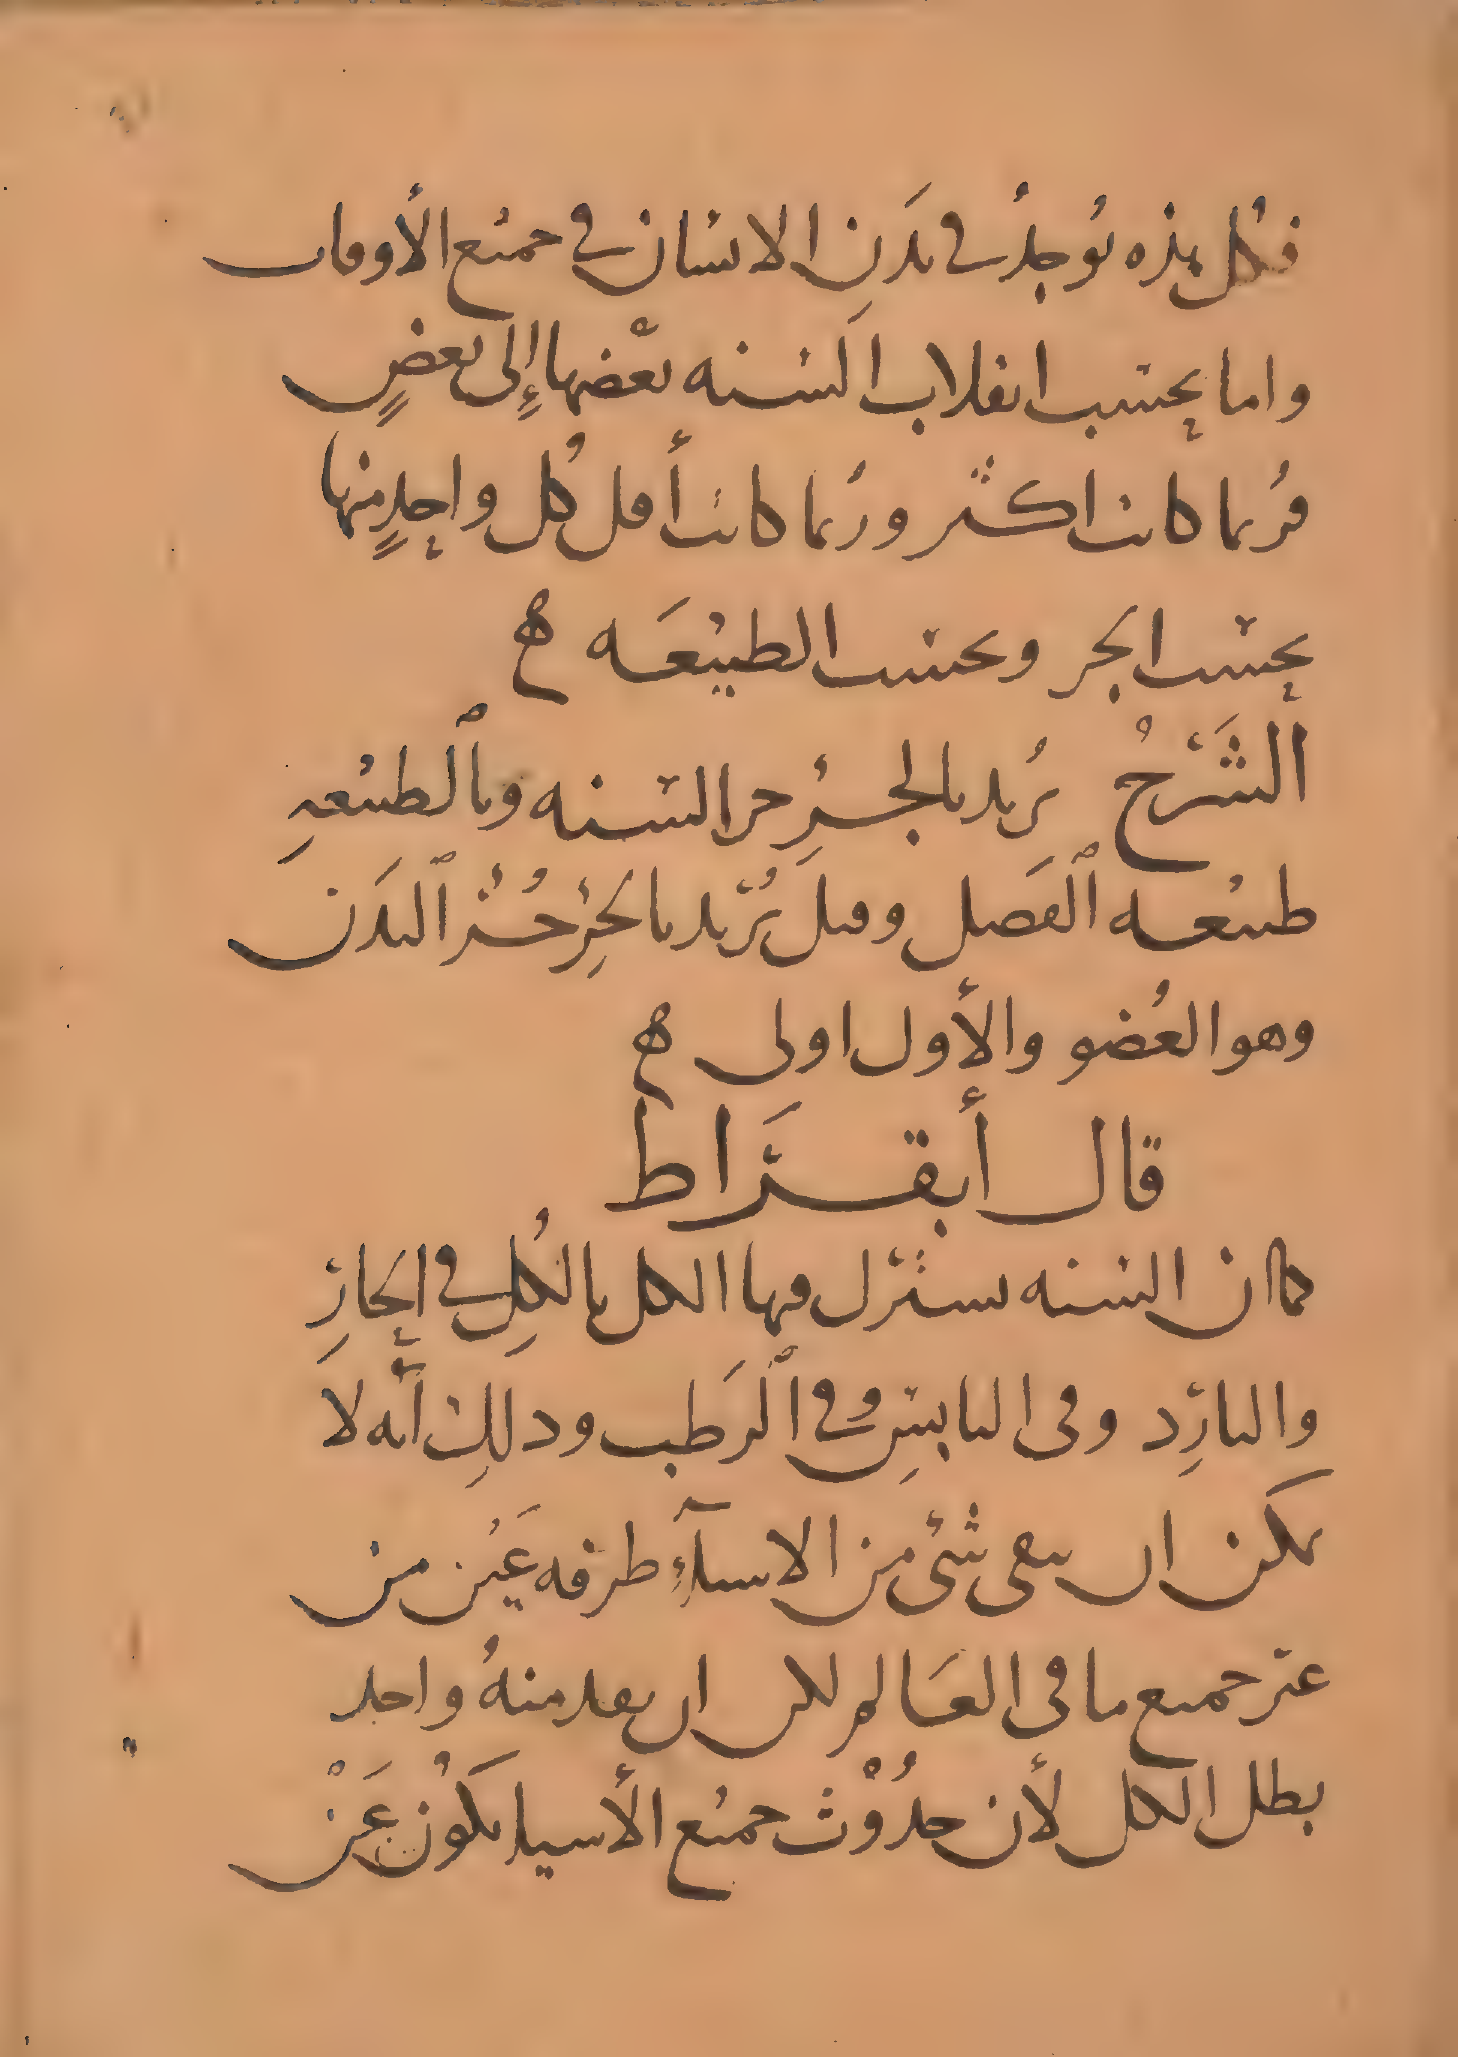 فكل هذه توجد في بدن الانسان في جميع الأوقات
واما بحسب انقلاب السنه بعضها إلى بعضٍ
فرُبما كانت اكثر ورُبما كانت أقل كُل واحدٍ منها
بحسب الجز وبحسب الطبيعَه ه
الشَرْحُ يُريد بالجُزِ جز السنه وبالطبيعهِ
طبيعه الفَصل وقيل يُريد بالجزِ جُزْ البَدَن
وهو العُضو والأول اولى ه
قال أبقرَاط
كما ان السنه يشترك فيها الكل بالكُلِ في الحَارِ
والبارِد وفى اليابسِ وفي الرَطب وذلك أنه لا
يمكن ان يبقى شئ من الاشيآءِ طرفه عَين من
غير جميع ما في العَالم لكن ان فقد منهُ واحد
بطل الكل لأن حدُوْث جميع الأشيا يكَوُن عَنْ